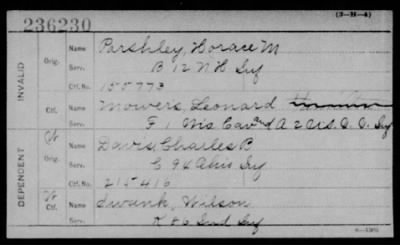 236230
(3-H-4)
INVALID
Orig. Name Parshley, Horace M
Serv. B 12 N H Inf
Ctf. No. 155773
Ctf. Name Mowers, Leonard
Serv. F 1 Wis Cav & A 2 U.S. Inf
DEPENDENT
W
Orig. Name Davis, Charles B
Serv. G 94 Ohio Inf
Ctf. No. 215416
W
Ctf. Name Swank, Wilson
Serv. K 86 Ind Inf